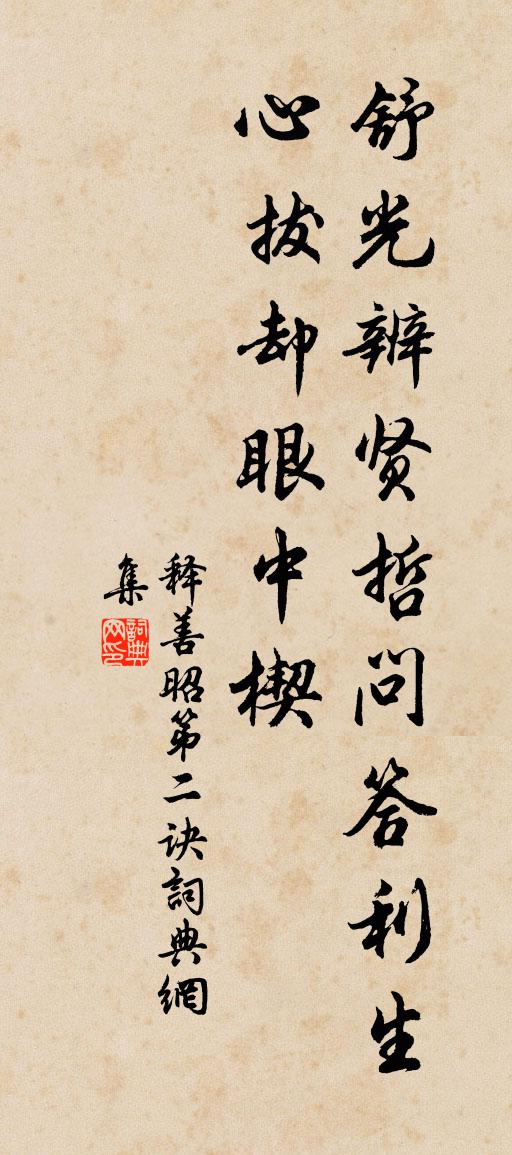 舒光辨贤哲问答利生
心拔却眼中楔
释善昭第二诀词典網
集
詞典
网印